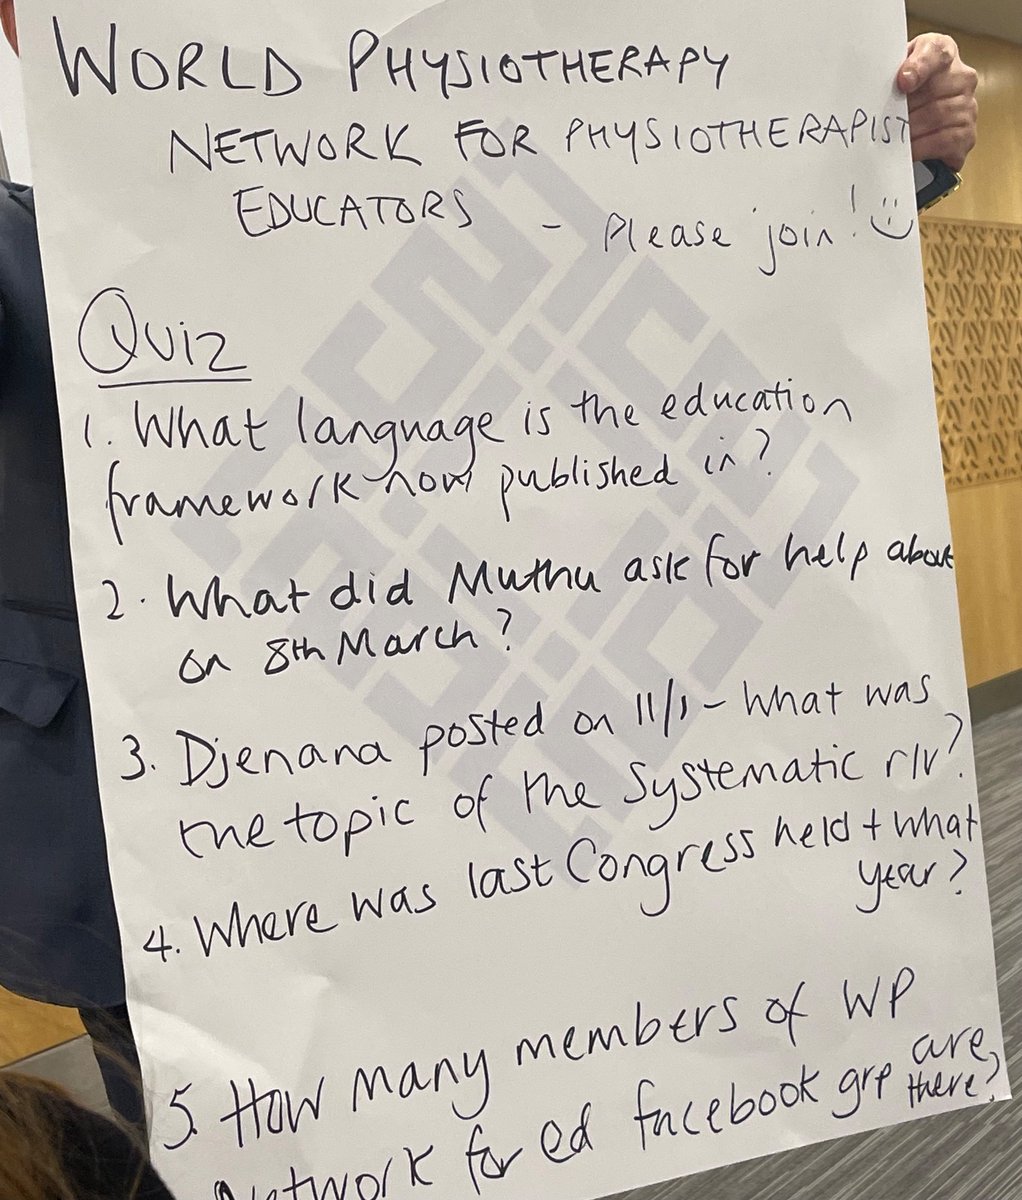 WORLD PHYSIOTHERAPY
NETWORK FOR PHYSIOTHERAPIST
EDUCATORS - Please join! :)
Quiz
1. What language is the education
framework now published in?
2. What did Muthu ask for help about
on 8th March?
3. Djenana posted on 11/1 - What was
the topic of the systematic r/v?
4. Where was last Congress held + what
year?
5. How many members of WP
Network for ed facebook grp are
there?